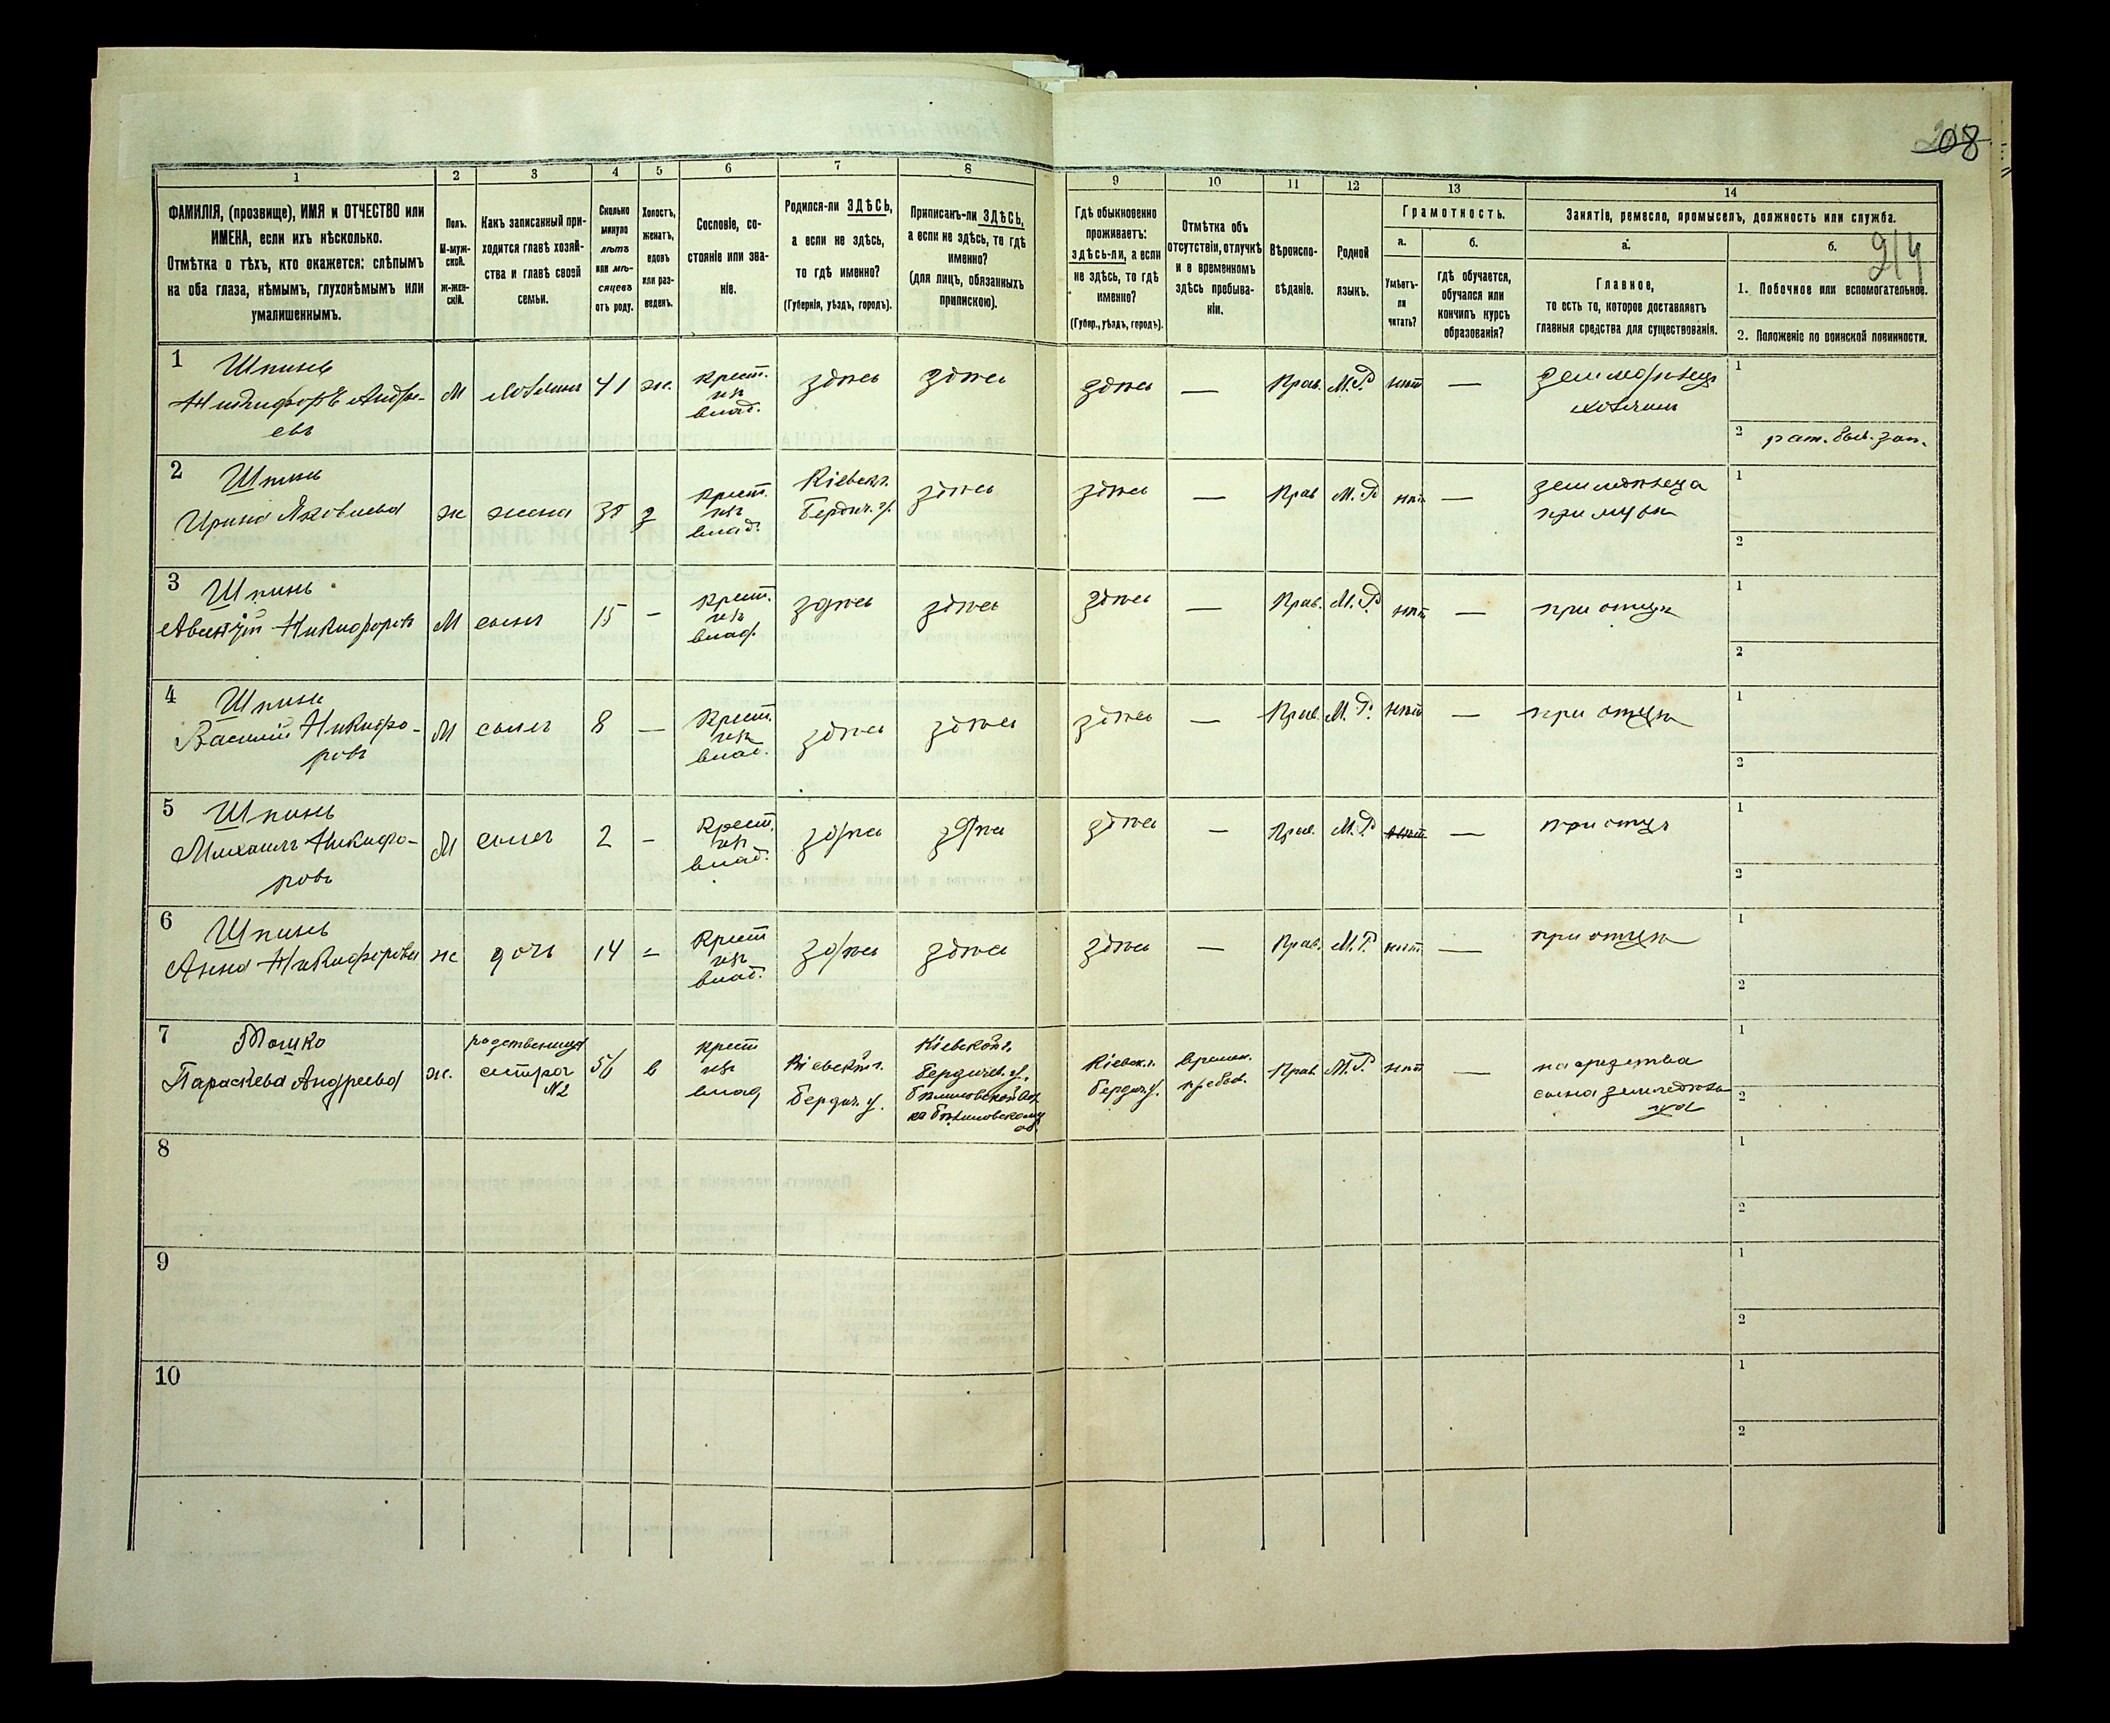 208
214
1
2
3
4
5
6
7
8
9
10
11
12
13
14
ФАМИЛІЯ, (прозвище), ИМЯ и ОТЧЕСТВО или
ИМЕНА, если ихъ нѣсколько.
Отмѣтка о тѣхъ, кто окажется: слѣпымъ
на оба глаза, нѣмымъ, глухонѣмымъ или
умалишеннымъ.
Полъ.
М-муж-
ской.
Ж-жен-
скій.
Какъ записанный при-
ходится главѣ хозяй-
ства и главѣ своей
семьи.
Сколько
минуло
лѣтъ
или мѣ-
сяцевъ
отъ роду.
Холостъ,
женатъ,
вдовъ
или раз-
веденъ.
Сословіе, со-
стояніе или зва-
ніе.
Родился-ли ЗДѢСЬ,
а если не здѣсь,
то гдѣ именно?
(Губернія, уѣздъ, городъ).
Приписанъ-ли ЗДѢСЬ,
а если не здѣсь, то гдѣ
именно?
(для лицъ, обязанныхъ
припискою).
Гдѣ обыкновенно
проживаетъ:
здѣсь-ли, а если
не здѣсь, то гдѣ
именно?
(Губер., уѣздъ, городъ).
Отмѣтка объ
отсутствіи, отлучкѣ
и о временномъ
здѣсь пребыва-
ніи.
Вѣроиспо-
вѣданіе.
Родной
языкъ.
Грамотность.
а.
Умѣетъ-
ли
читать?
б.
гдѣ обучается,
обучался или
кончилъ курсъ
образованія?
Занятіе, ремесло, промыселъ, должность или служба.
а.
Главное,
то есть то, которое доставляетъ
главныя средства для существованія.
б.
1. Побочное или вспомогательное.
2. Положеніе по воинской повинности.
1
Шпинь
Никифоръ Андре-
евъ
М
хозяинъ
41
ж.
крест.
изъ
влад.
здѣсь
здѣсь
здѣсь
—
Прав.
М.Р.
нѣтъ
—
земледѣлецъ
хозяинъ
1
2 рат. был. зап.
2
Шпинь
Ирина Яковлева
ж
жена
35
з
крест.
изъ
влад.
Кіевск.
Бердич. у.
здѣсь
здѣсь
—
Прав
М. Р
нѣтъ
—
земледѣлица
при мужѣ
1
2
3
Шпинь
Никифоровъ
М
сынъ
15
-
крест.
изъ
влад.
здѣсь
здѣсь
здѣсь
—
Прав.
М. Р
нѣтъ
—
при отцѣ
1
2
4
Шпинь
Василій Никифо-
ровъ
М
сынъ
8
—
крест.
изъ
влад.
здѣсь
здѣсь
здѣсь
—
Прав.
М. Р.
нѣтъ
—
при отцѣ
1
2
5
Шпинь
Михаилъ Никифо-
ровъ
М
сынъ
2
-
крест.
изъ
влад.
здѣсь
здѣсь
здѣсь
—
Прав.
М. Р
—
при отцѣ
1
2
6
Шпинь
Анна Никифорова
ж
дочь
14
-
Крест
изъ
влад.
здѣсь
здѣсь
здѣсь
—
Прав.
М. Р.
нѣтъ
—
при отцѣ
1
2
7
Параскева Андреева
ж.
родственница
сестра
№2
в
крест
изъ
влад
Кіевской г.
Бердич. у.
Кіевской г.
Бердичев. у.
Кіевск. г.
Бердич. у.
Времен.
пребыв.
Прав.
М. Р
нѣтъ
—
на средства
сына земледѣль-
ца
1
2
8
1
2
9
1
2
10
1
2